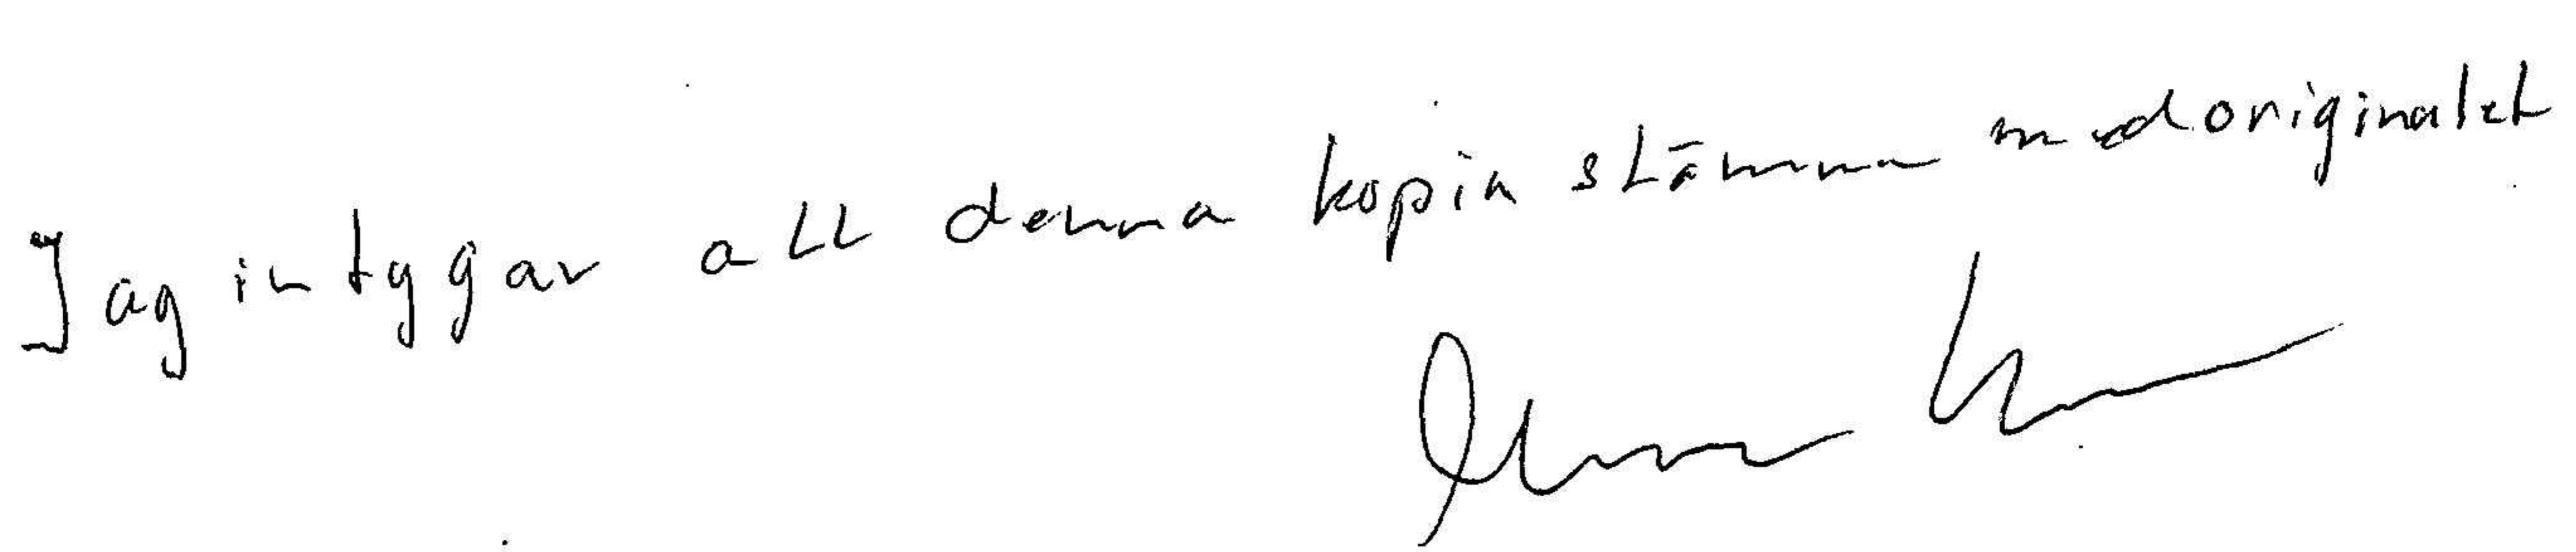 Jag intygar att denna kopia stämmer med originalet